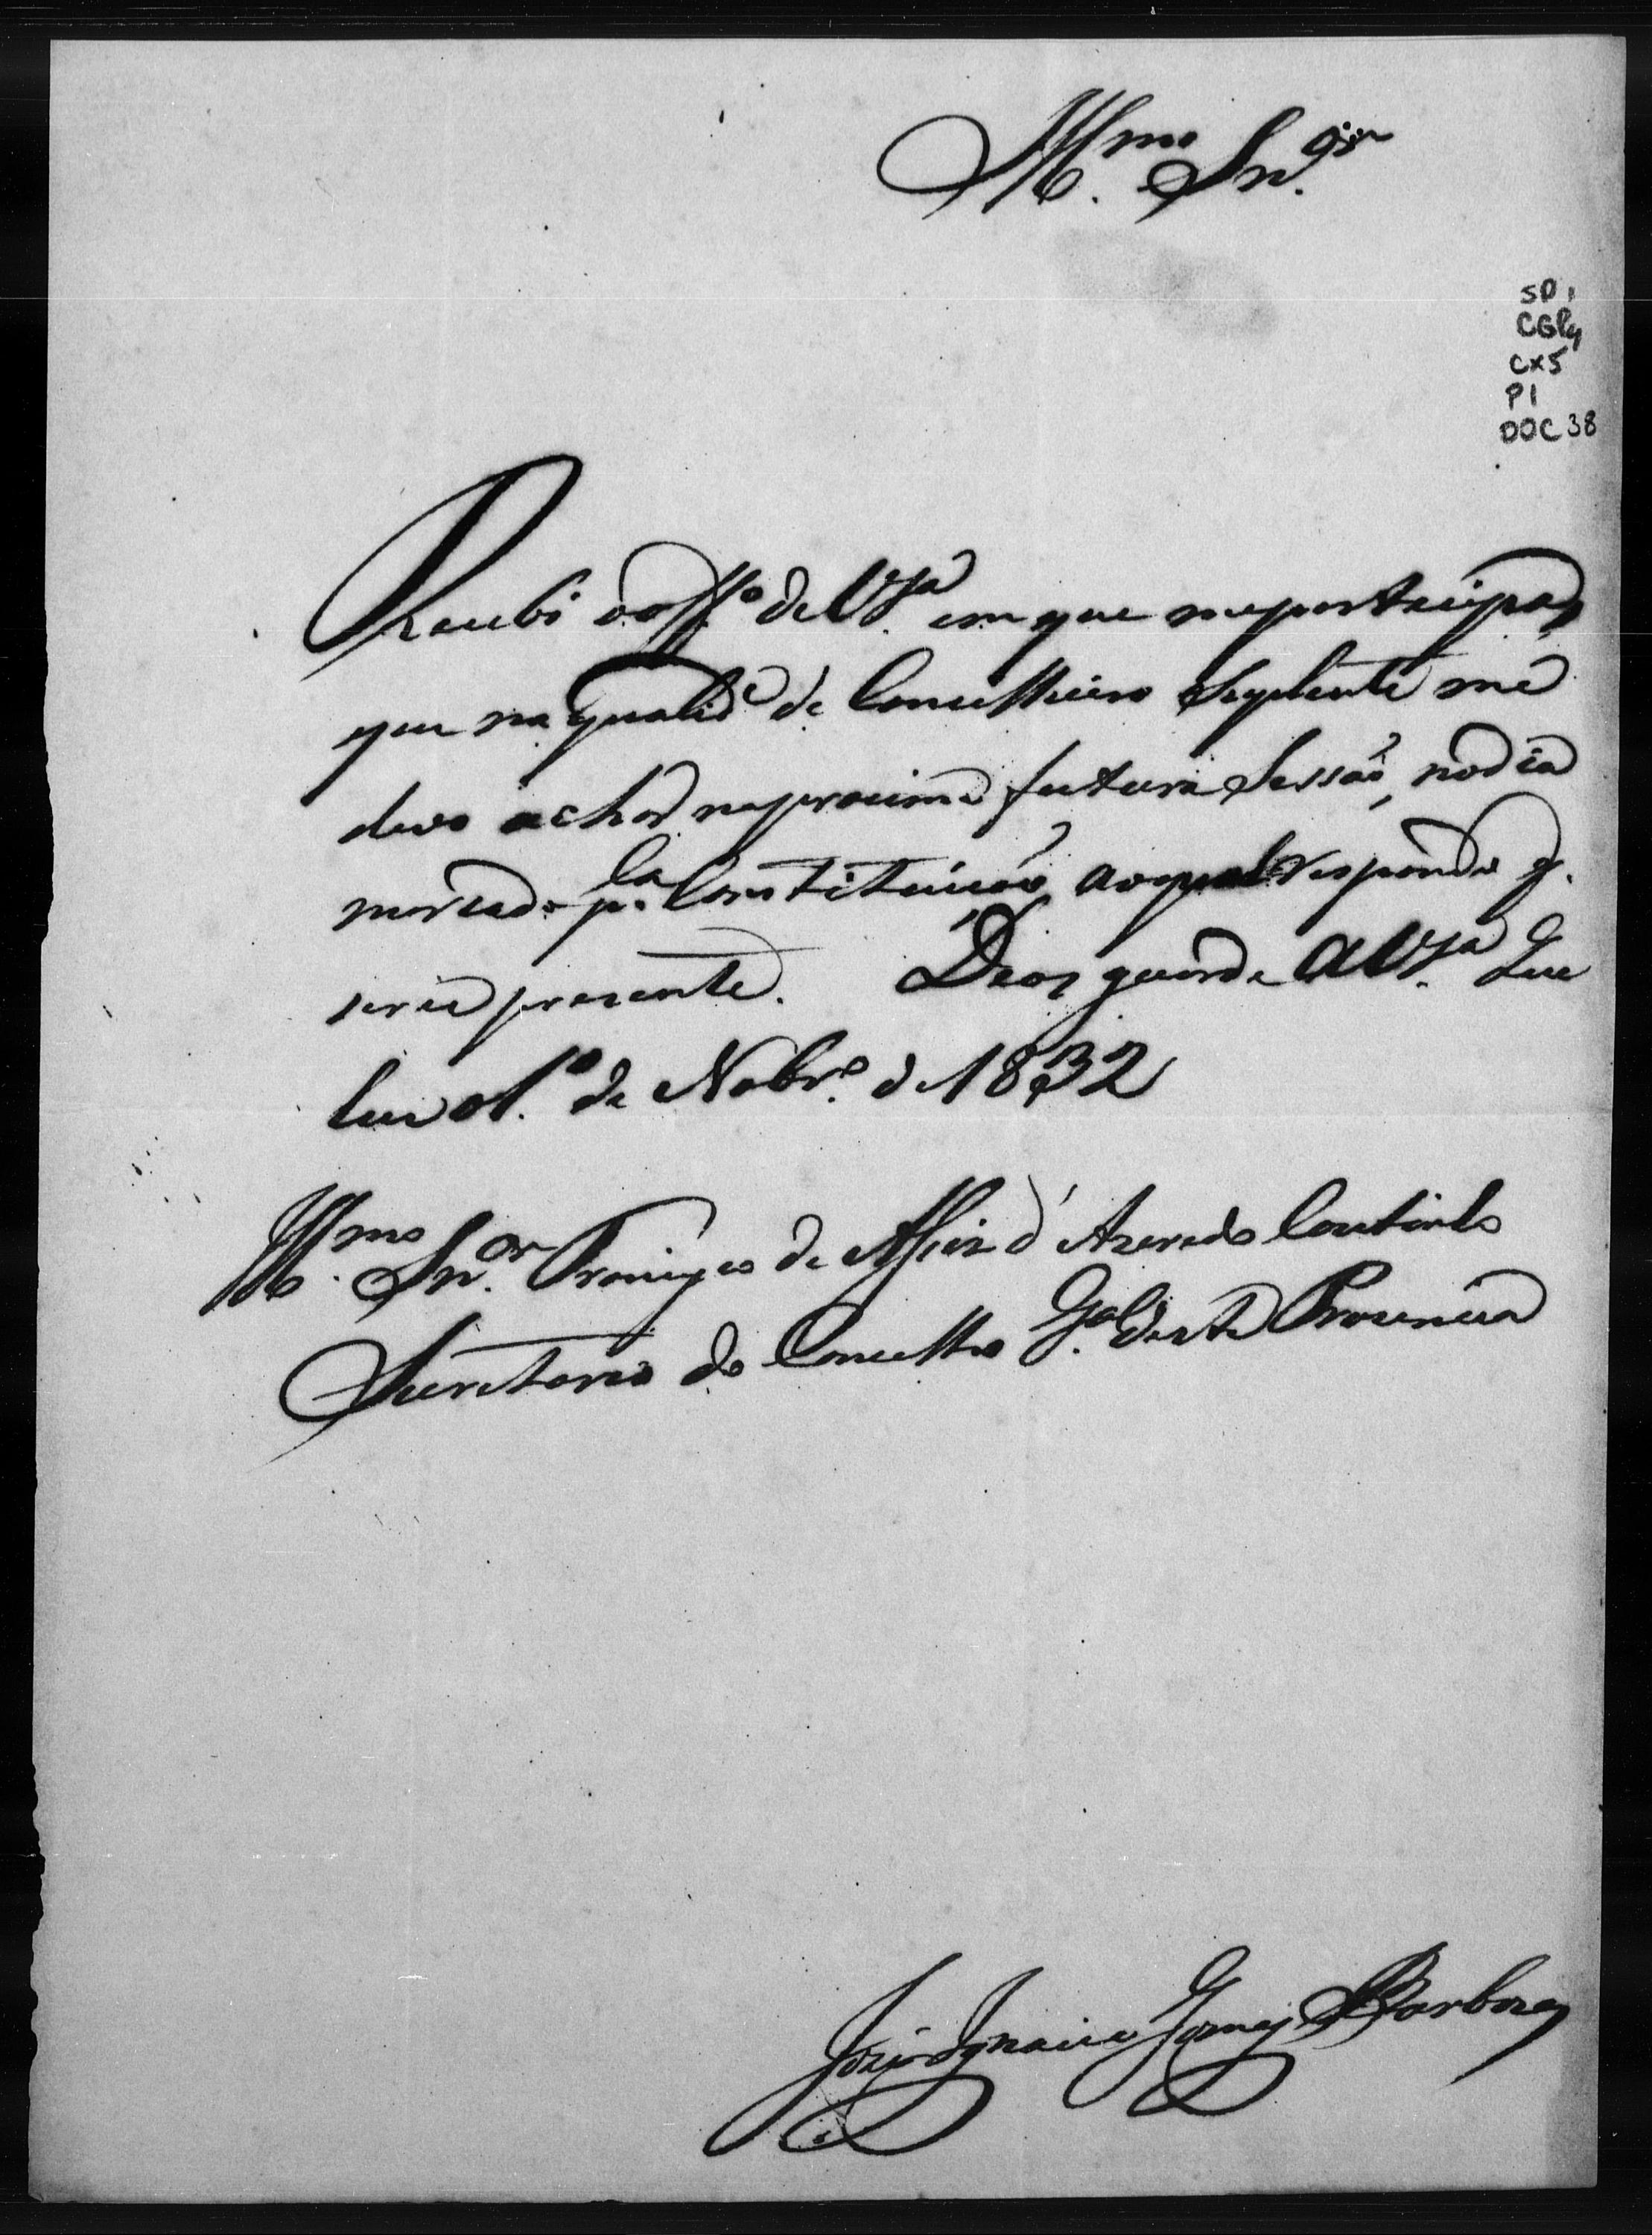 Illmo. Snr.
SP 1
CGPg
CX5
P1
DOC 38
Recebi o offo. de V.Sa. em que me participa,
que na qualide. de Concelheiro Suplente me
devo achar na procima futura Sessão, no dia
marcado pela. Constituição, ao qual respondo q.
serei presente. Deos guarde a V.Sa. Que
luz o 1.º de Nobro. de 1832
Illmo. Snor. Francisco de Assiz d'Azeredo Coutinho
Secretario do Concelho Gal. desta Provincia
José Ignacio Gomes Barboza